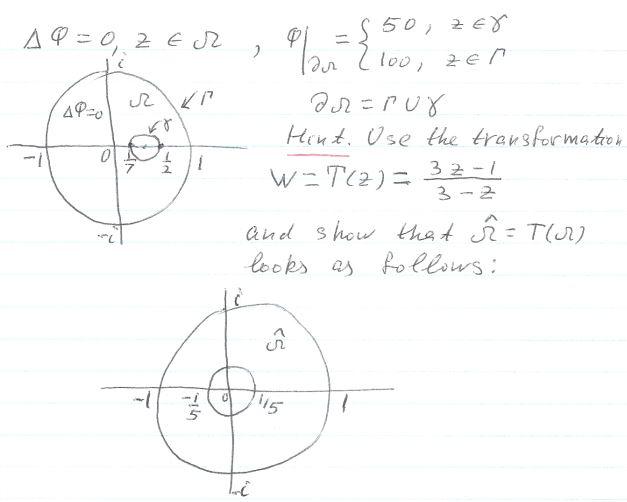 Δφ = 0, z ∈ Ω , φ|∂Ω = { 50, z ∈ γ
100, z ∈ Γ
i
Δφ=0 Ω Γ
γ
-1 0 1/7 1/2 1
-i
∂Ω = Γ ∪ γ
Hint. Use the transformation
W = T(z) = (3z-1)/(3-z)
and show that Ω̂ = T(Ω)
looks as follows:
i
Ω̂
-1 -1/5 0 1/5 1
-i